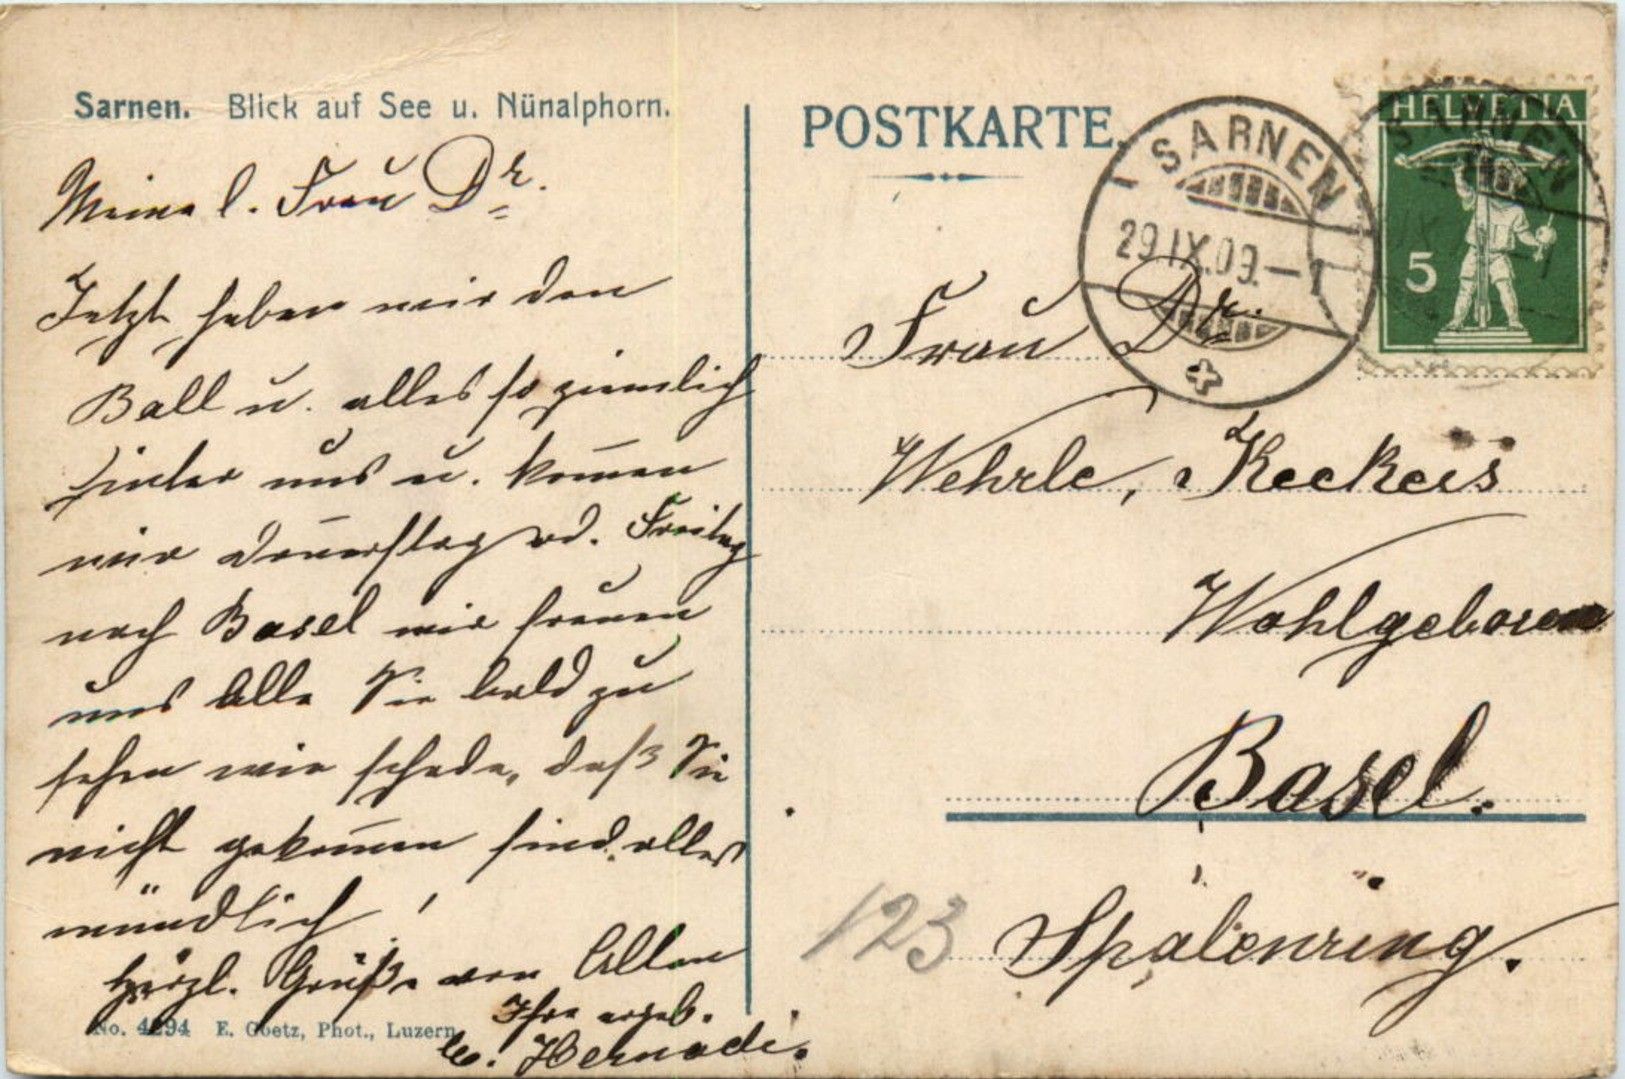 Sarnen. Blick auf See u. Nünalphorn.
Meine l. Frau Dr.
Jetzt haben wir den
Ball u. alles so ziemlich
hinter uns u. kom̄en
wir Don̄erstag od. Freitag
nach Basel wir freuen
uns Alle Sie bald zu
sehen wie schade, daß Sie
nicht gekom̄en sind, alles
mündlich!
Herzl. Grüße von Allen
Ihre ergeb.
Hernadi.
No. 4294 E. Goetz, Phot., Luzern
POSTKARTE.
SARNEN
29.IX.09.–1
HELVETIA
5
SARNEN
Frau Dr.
Wehrle, Keckeis
Wohlgeboren
Basel.
123 Spalenring.